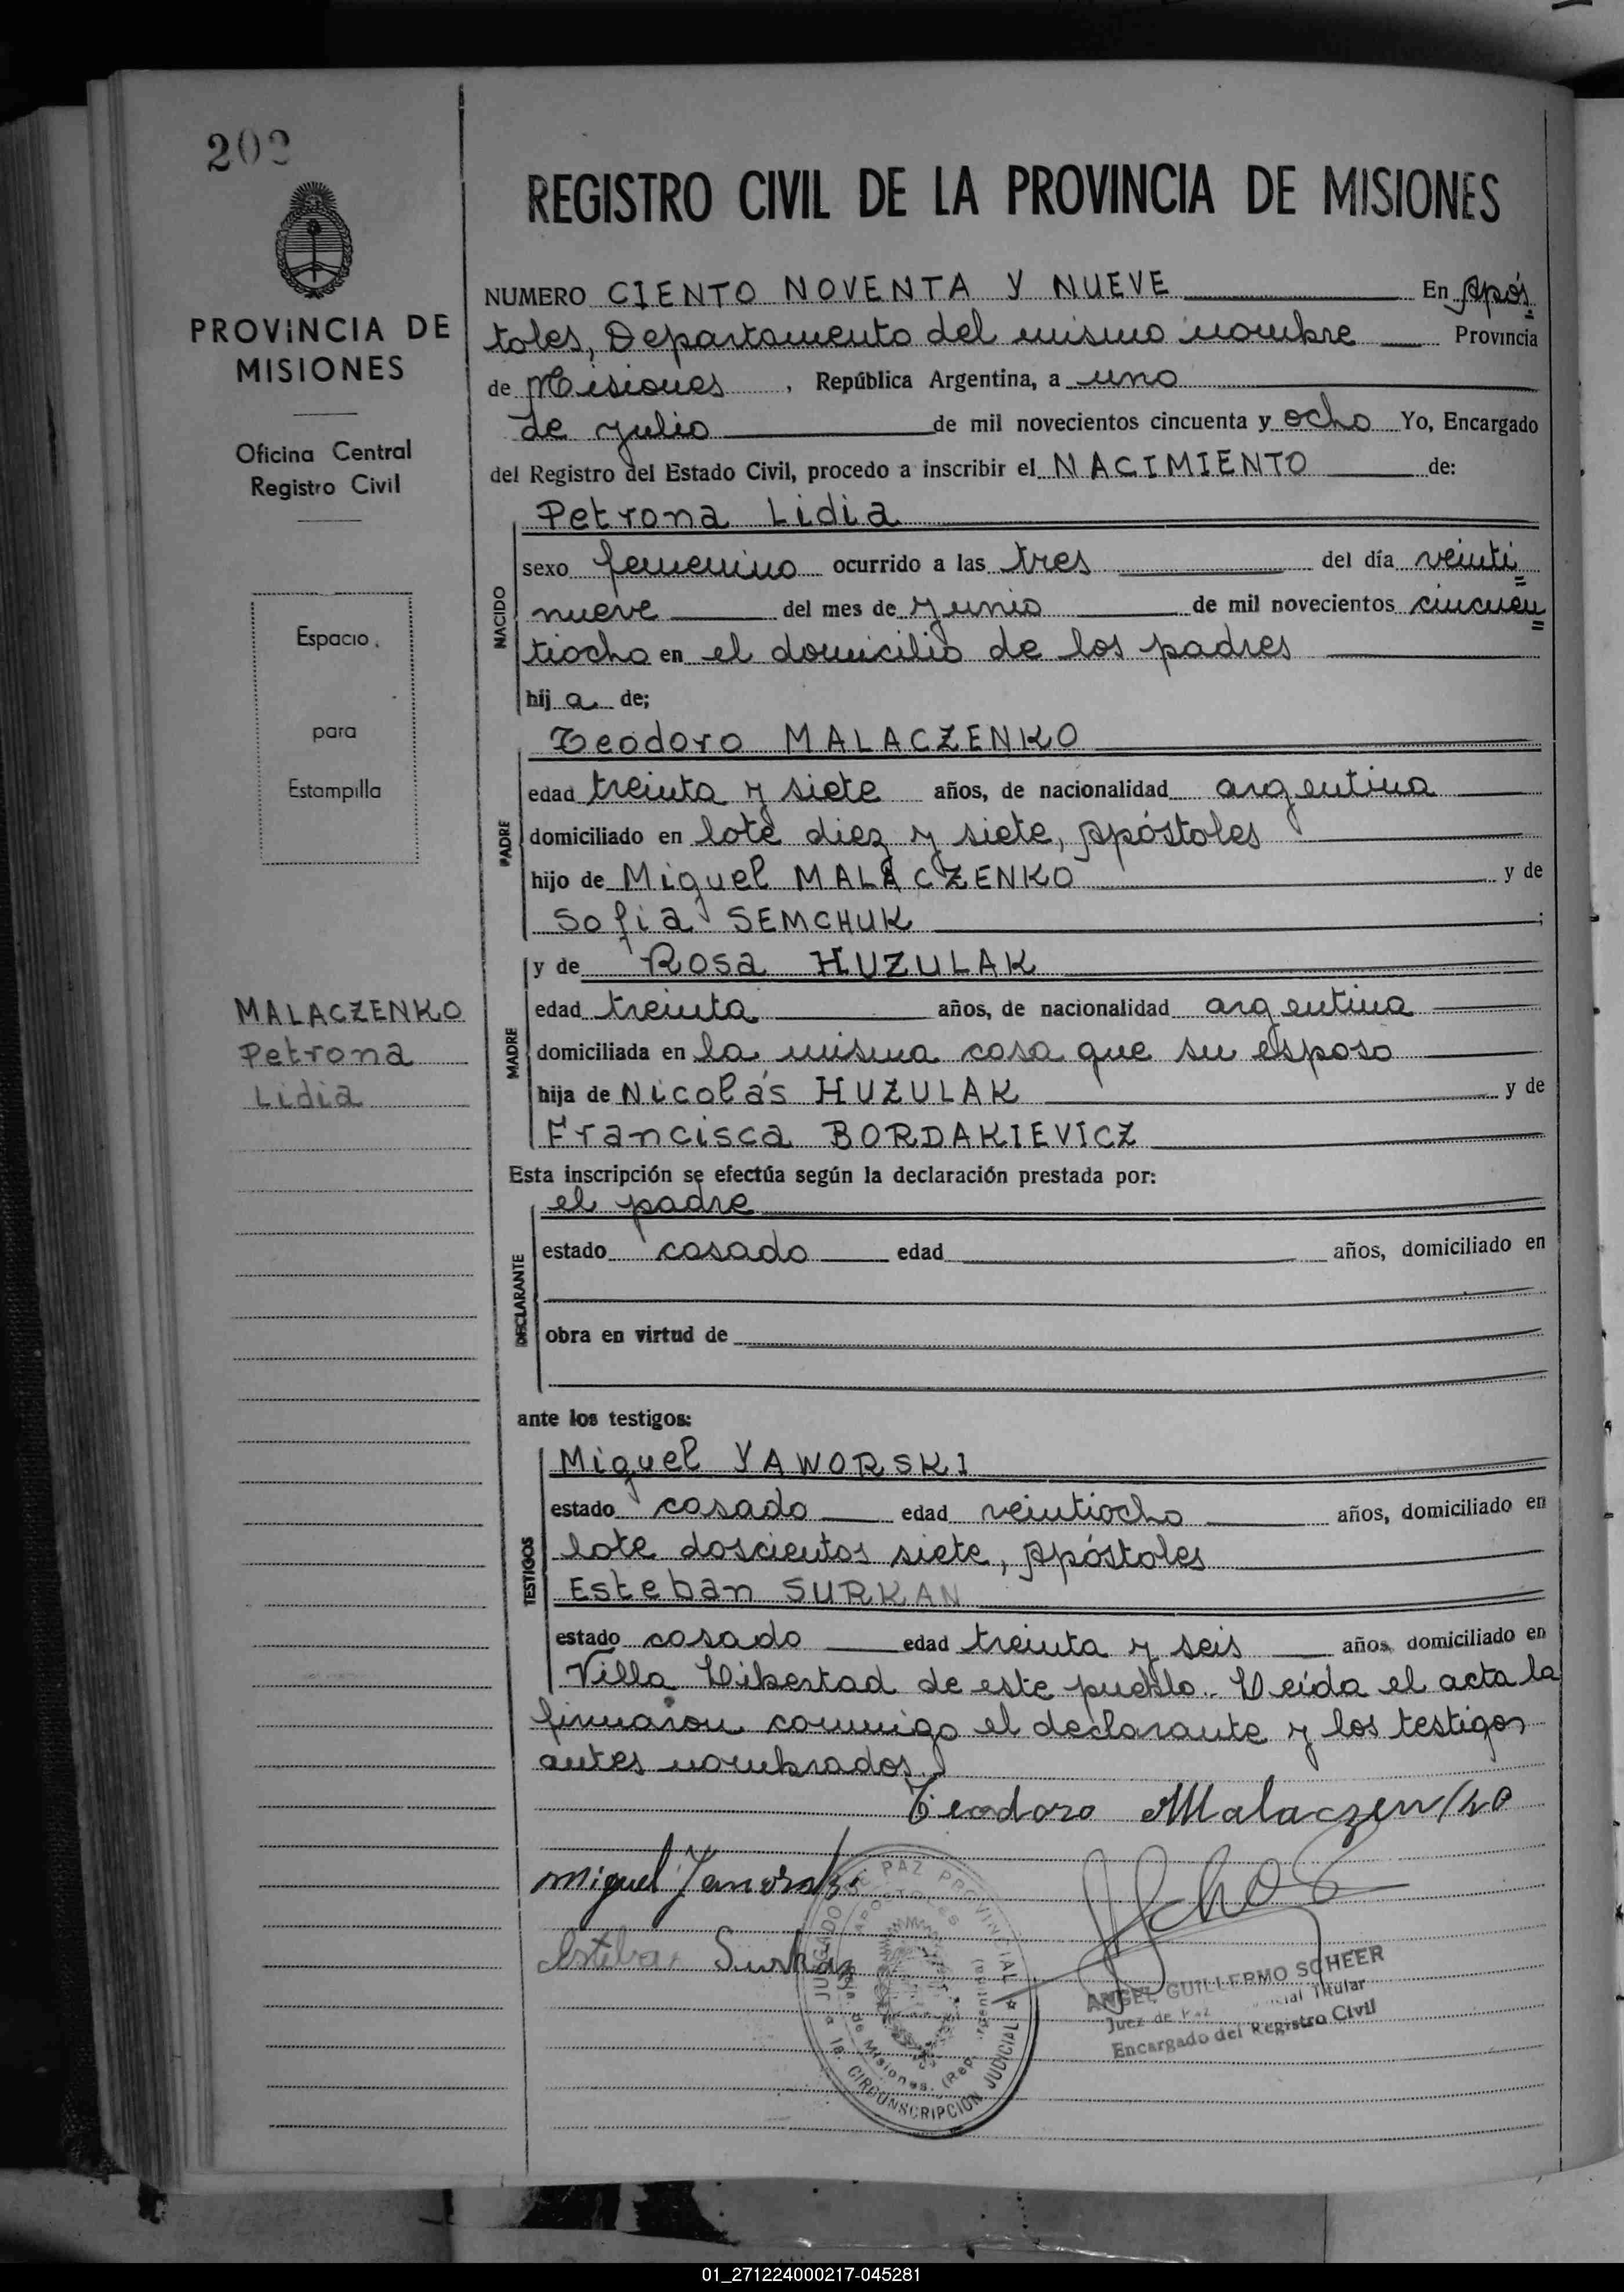 202
PROVINCIA DE
MISIONES
Oficina Central
Registro Civil
Espacio
para
Estampilla
MALACZENKO
Petrona
Lidia
REGISTRO CIVIL DE LA PROVINCIA DE MISIONES
NUMERO CIENTO NOVENTA Y NUEVE En Após
toles, Departamento del mismo nombre Provincia
de Misiones, República Argentina, a uno
de julio de mil novecientos cincuenta y ocho Yo, Encargado
del Registro del Estado Civil, procedo a inscribir el NACIMIENTO de:
NACIDO
Petrona Lidia
sexo femenino ocurrido a las tres del día veinti
nueve del mes de junio de mil novecientos cincuen
tiocho en el domicilio de los padres
hij a de;
PADRE
Teodoro MALACZENKO
edad treinta y siete años, de nacionalidad argentina
domiciliado en lote diez y siete, Apóstoles
hijo de Miguel MALACZENKO y de
Sofia SEMCHUK ;
MADRE
y de Rosa HUZULAK
edad treinta años, de nacionalidad argentina
domiciliada en la misma casa que su esposo
hija de Nicolás HUZULAK y de
Francisca BORDAKIEVICZ
Esta inscripción se efectúa según la declaración prestada por:
DECLARANTE
el padre
estado casado edad años, domiciliado en
obra en virtud de
ante los testigos:
TESTIGOS
Miguel YAWORSKI
estado casado edad veintiocho años, domiciliado en
lote doscientos siete, Apóstoles
Esteban SURKAN
estado casado edad treinta y seis años, domiciliado en
Villa Libertad de este pueblo. Leída el acta la
firmaron conmigo el declarante y los testigos
antes nombrados.
Teodoro Malaczenko
Miguel
Esteban Surkan
JUZGADO DE PAZ PROVINCIAL
APOSTOLES
de Misiones. (Rep. Argentina)
1a. CIRCUNSCRIPCION JUDICIAL
ANGEL GUILLERMO SCHEER
Juez de Paz Titular
Encargado del Registro Civil
01_271224000217-045281